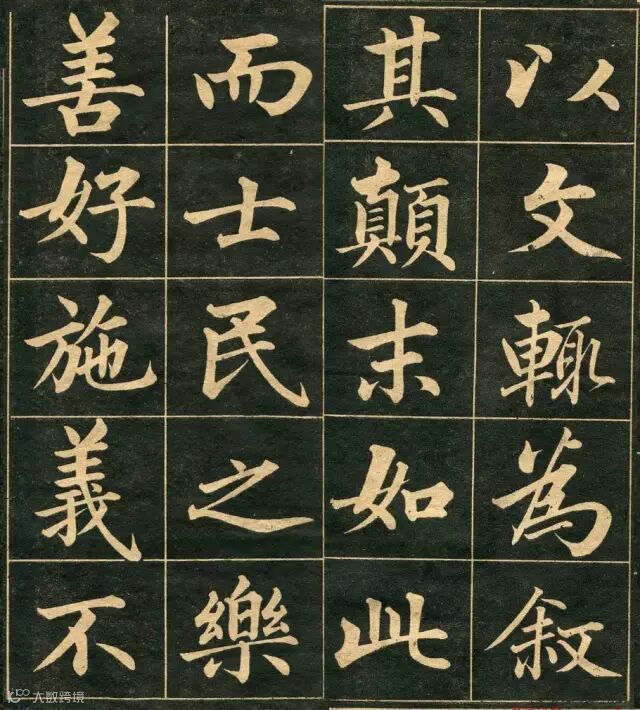 以文輙為叙
其顛末如此
而士民之樂
善好施義不
大数跨境